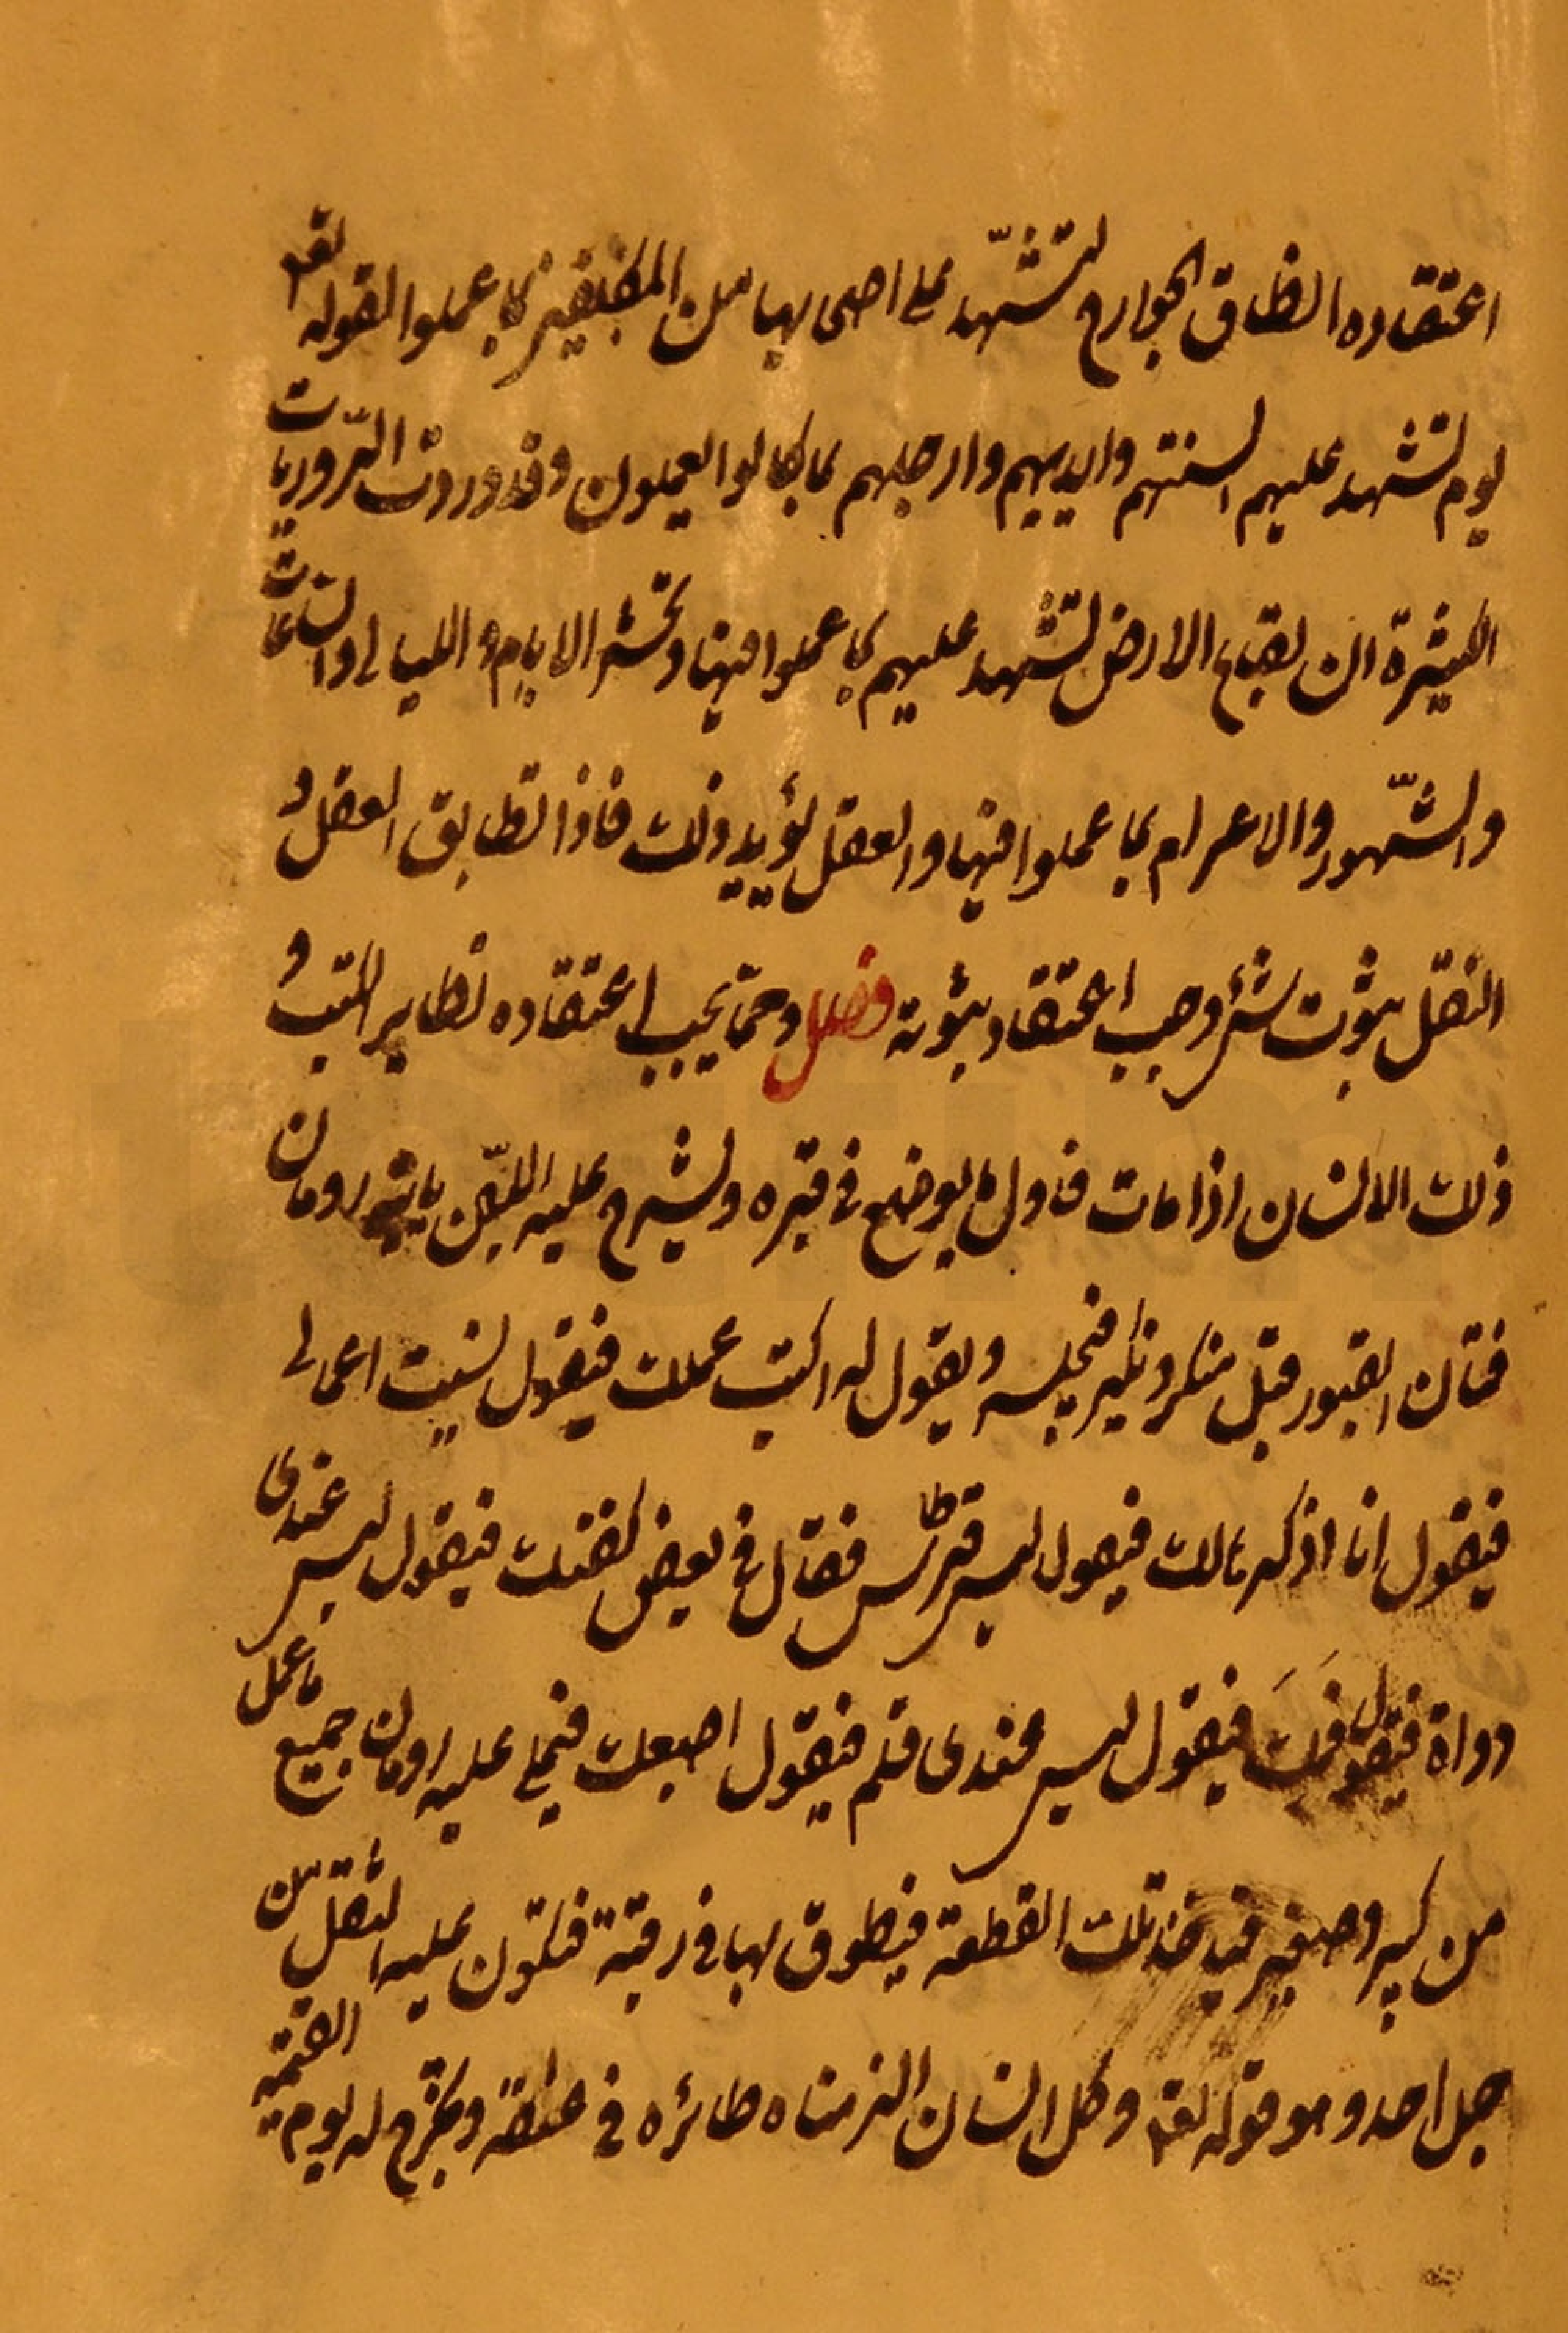 اعتقاده انطاق الجوارح لتشهد على اصحابها من المكلفين بما عملوا لقوله تعه
يوم تشهد عليهم السنتهم وايديهم وارجلهم بما كانوا يعملون وقد وردت الروايات
الكثيرة ان بقاع الارض تشهد عليهم بما عملوا فيها وتحشر الايام و الليالي والساعات
والشهور والاعوام بما عملوا فيها والعقل يؤيد ذلك فاذا تطابق العقل و
النقل بثبوت شئ وجب اعتقاد ثبوته فصل ومما يجب اعتقاده تطاير الكتب و
ذلك الانسان اذا مات فاول ما يوضع في قبره ويشرج عليه اللبن ياتيه رومان
فتان القبور قبل منكر ونكير فيجلسه ويقول له اكتب عملك فيقول نسيت اعمالي
فيقول انا اذكرها لك فيقول ليس قرطاس فقال في بعض كفنك فيقول ليس عندي
دواة فيقول فمك فيقول ليس عندى قلم فيقول اصبعك فيملي عليه رومان جميع ما عمل
من كبير وصغير فياخذ تلك القطعة فيطوق بها في رقبته فتكون عليه اثقل من
جبل احد وهو قوله تعه وكل انسان الزمناه طائره في عنقه ويخرج له يوم القيمة